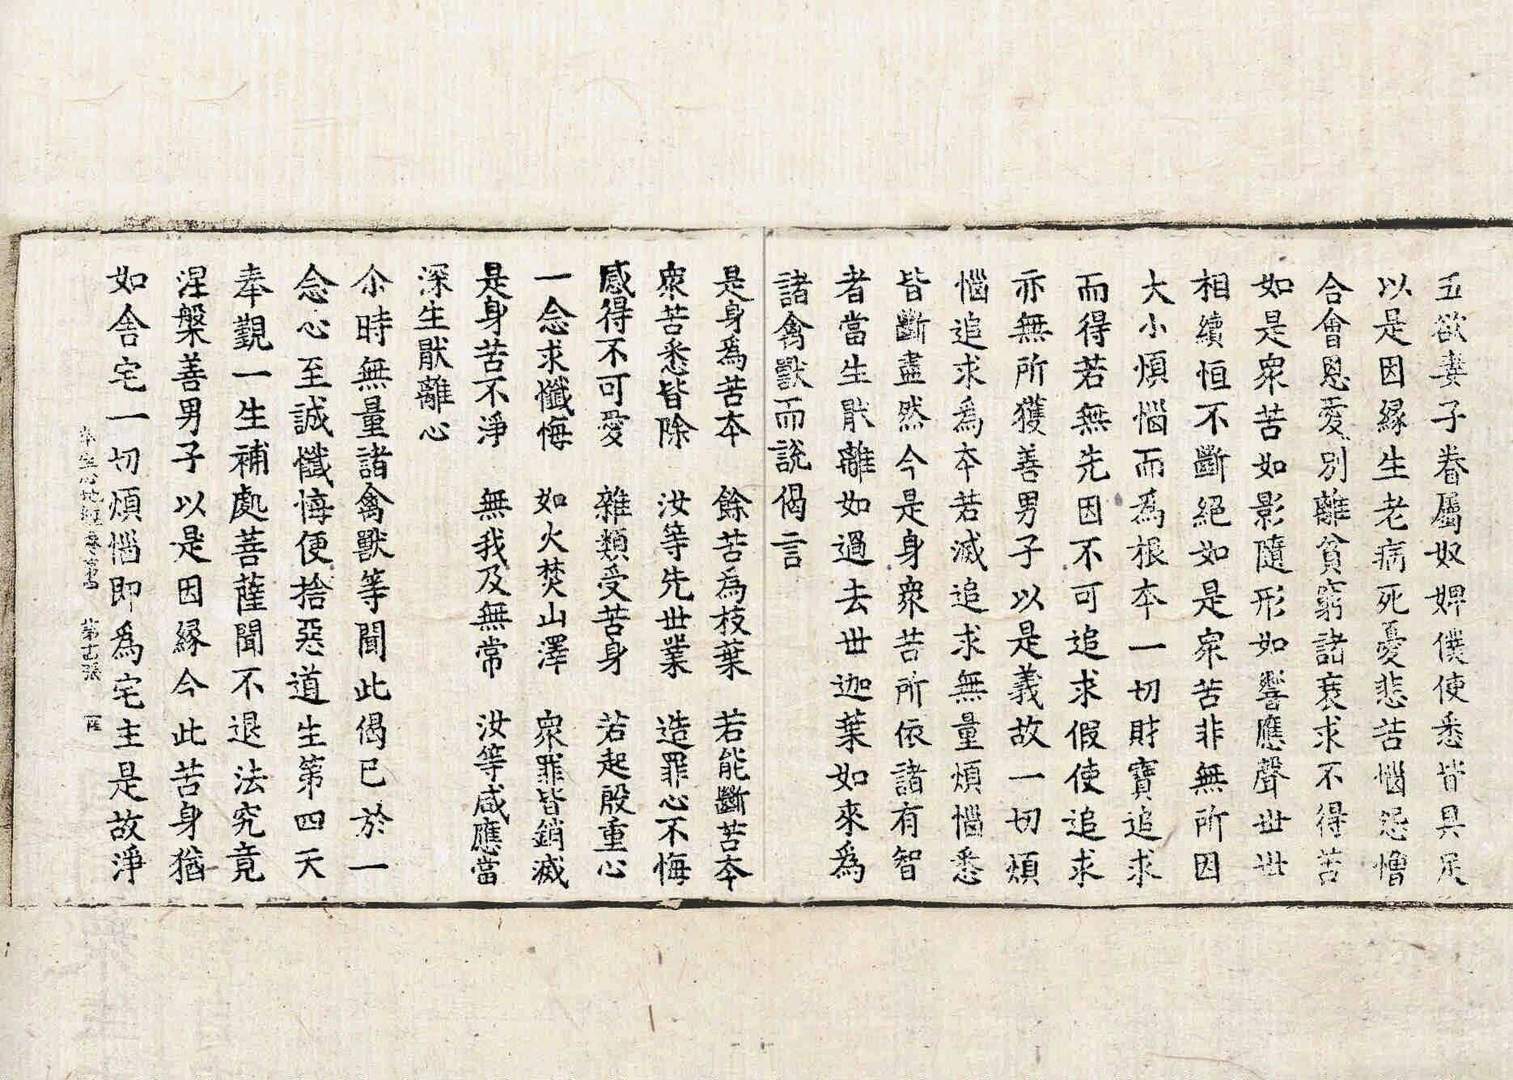 五欲妻子眷屬奴婢僕使悉皆具足
以是因緣生老病死憂悲苦惱怨憎
合會恩愛別離貧窮諸衰求不得苦
如是衆苦如影隨形如響應聲世世
相續恒不斷絕如是衆苦非無所因
大小煩惱而爲根本一切財寶追求
而得若無先因不可追求假使追求
亦無所獲善男子以是義故一切煩
惱追求爲本若滅追求無量煩惱悉
皆斷盡然今是身衆苦所依諸有智
者當生猒離如過去世迦葉如來爲
諸禽獸而說偈言
是身爲苦本 餘苦爲枝葉 若能斷苦本
衆苦悉皆除 汝等先世業 造罪心不悔
感得不可愛 雜類受苦身 若起殷重心
一念求懺悔 如火焚山澤 衆罪皆銷滅
是身苦不淨 無我及無常 汝等咸應當
深生猒離心
尒時無量諸禽獸等聞此偈已於一
念心至誠懺悔便捨惡道生第四天
奉覲一生補處菩薩聞不退法究竟
涅槃善男子以是因緣今此苦身猶
如舍宅一切煩惱即爲宅主是故淨
本生心地經卷 第 張